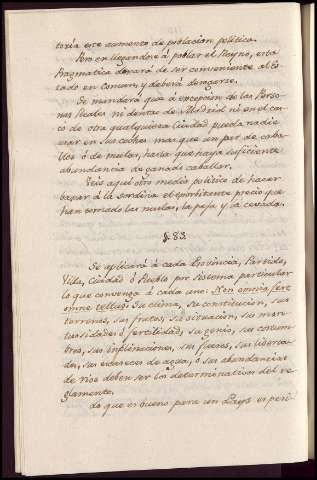 toria este aumento de poblacion politica.
Pero en llegandose à poblar el Reyno, esta
Pragmatica dexará de ser conveniente al Es-
tado en comun, y deberá derogarse.
Se mandará que à excepcion de las Perso-
nas Reales ni dentro de Madrid ni en el cas-
co de otra qualquiera Ciudad pueda nadie
usar en sus coches mas que un par de caba-
llos ò de mulas, hasta que haya suficiente
abundancia de ganado caballar.
Veis aqui otro medio politico de hacer
baxar à la sordina el exorbitante precio que
han tomado las mulas, la paja y la cevada.
§. 83.
Se aplicará à cada Provincia, Partido,
Villa, Ciudad ò Pueblo por sistema particular
lo que convenga à cada uno. Non omnia fert
omne tellus. Su clima, su constitucion, sus
terrenos, sus frutos, su situacion, sus man-
sus costum-
bres, sus inclinaciones, sus fueros, sus liberta-
des, sus escaseces de agua, ò sus abundancias
de riego deben ser los determinativos del re-
glamento.
Lo que es bueno para un Pays es perju-